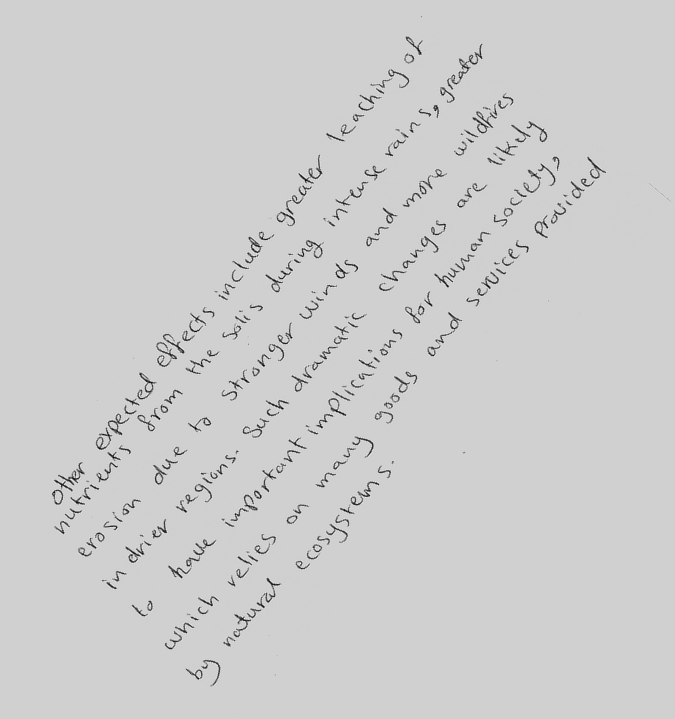 Other expected effects include greater leaching of
nutrients from the soils during intense rains, greater
erosion due to stronger winds and more wildfires
in drier regions. Such dramatic changes are likely
to have important implications for human society,
which relies on many goods and services provided
by natural ecosystems.